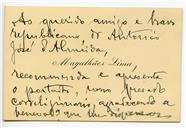 Ao querido amigo e bravo
republicano Dr Antonio
José d'Almeida,
Magalhães Lima,
recommenda e apresenta
o portador, nosso presado
correligionario, agradecendo a
benevol que lhe